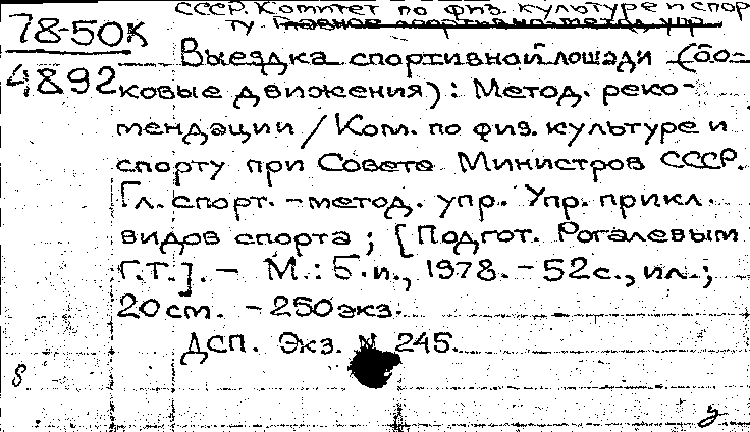 СССР. Комитет по физ. культуре и спор
ту. Главное спортивно-метод. упр.
78-50К
4892
Выездка спортивной лошади (бо-
ковые движения): Метод. реко-
мендации / Ком. по физ. культуре и
спорту при Совете Министров СССР.
Гл. спорт. - метод. упр. Упр. прикл.
видов спорта; [Подгот. Рогалевым
Г.Т.]. - М.: Б.и., 1978. - 52 с., ил.;
20 см. - 250 экз.
ДСП. Экз. N 245.
8